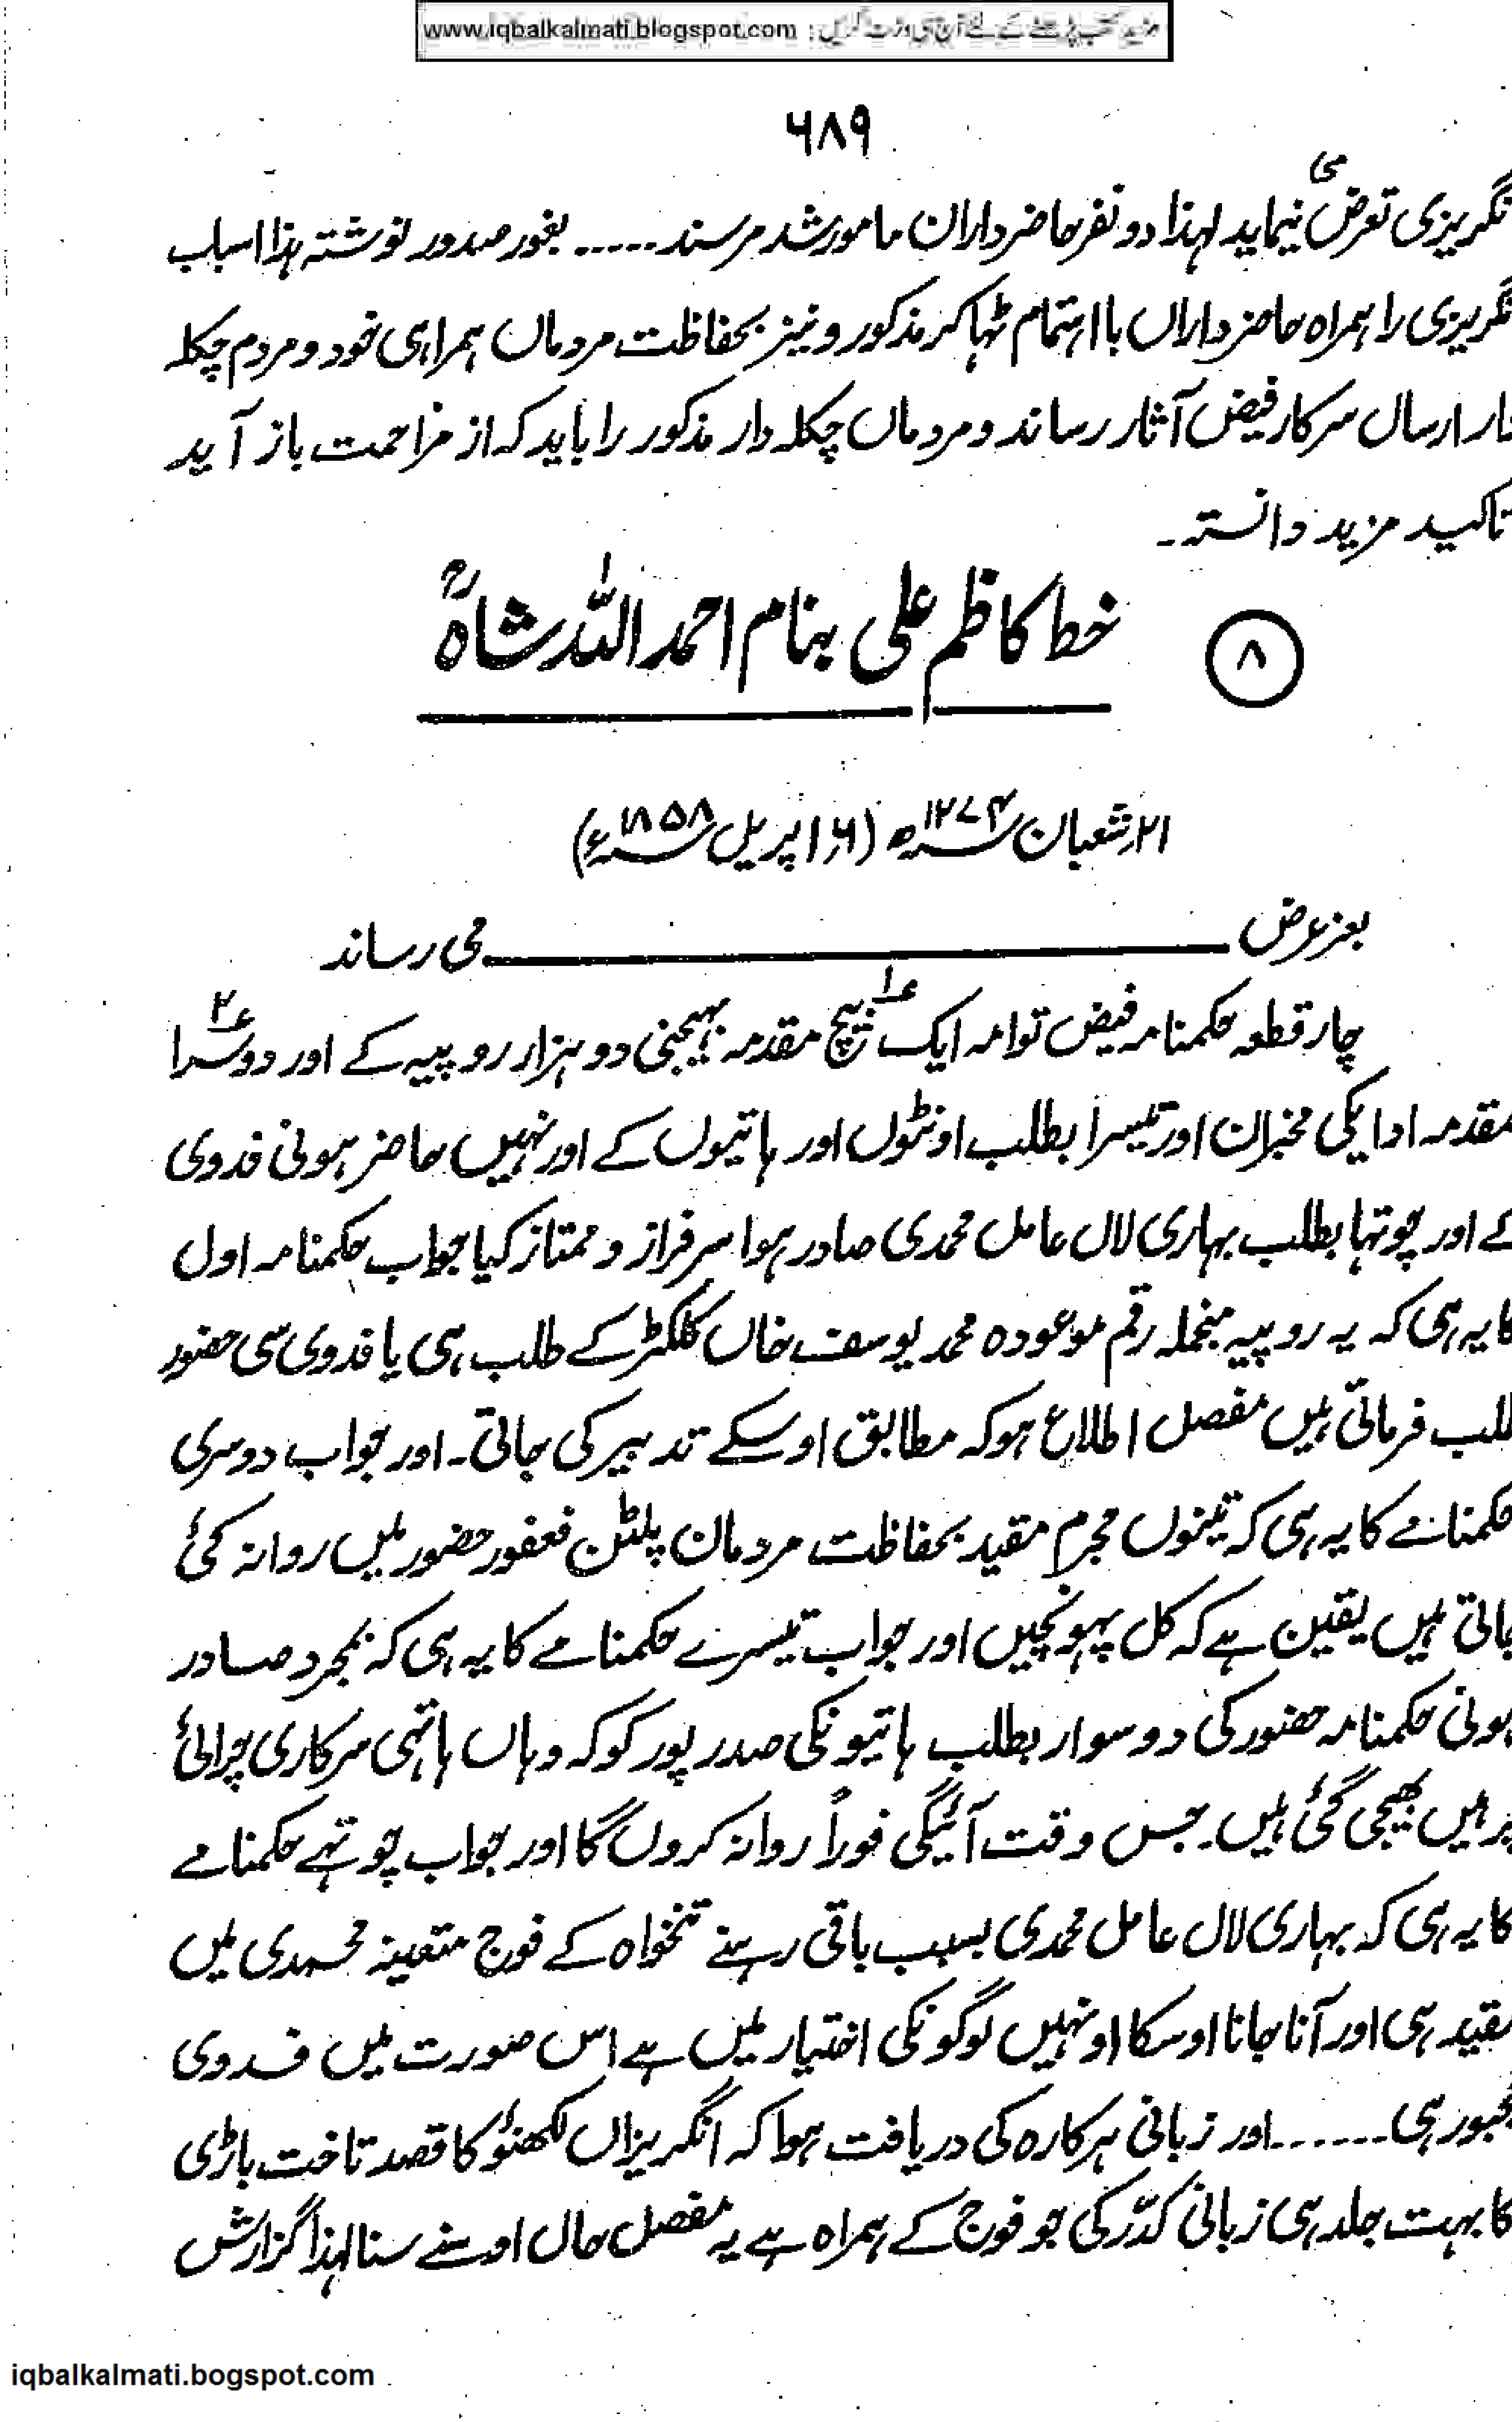 مزید کتب پڑھنے کے لئے آج ہی وزٹ کریں : www.iqbalkalmati.blogspot.com
۶۸۹
نگریزی تعرض می نیماید لہذا دو نفر حاضرداران مامور شد مرسند ..... بغور صدور نوشتہ ہذا اسباب
نگریزی را ہمراہ حاضرداراں با اہتمام ٹہاکر مذکور و نیز بحفاظت مردماں ہمراہی خود و مردم چکلہ
دار ارسال سرکار فیض آثار رساند و مردماں چکلہ دار مذکور را باید کہ از مزاحمت باز آید
تاکید مزید دانستہ۔
۸ خط کاظم علی بنام احمد اللہ شاہؒ
۲۱ر شعبان ۱۲۷۴ھ (۶ر اپریل ۱۸۵۸ء)
بعز عرض ــــــــــــــ می رساند
چار قطعہ حکمنامہ فیض توامہ ایک ؏۱ بیچ مقدمہ بہیجنی دو ہزار روپیہ کے اور دوسرا ؏۲
مقدمہ ادایگی مخبران اور تیسرا بطلب اونٹوں اور ہاتیوں کے اور نہیں حاضر ہونی فدوی
کے اور چوتہا بطلب بہاری لال عامل محمدی صادر ہوا سرفراز و ممتاز کیا جواب حکمنامہ اول
کا یہ ہی کہ یہ روپیہ منجملہ رقم موعودہ محمد یوسف خاں کلکٹر کے طلب ہی یا فدوی سی حضور
طلب فرماتی ہیں مفصل اطلاع ہو کہ مطابق اوسکے تدبیر کی جاتی۔ اور جواب دوسری
حکمنامے کا یہ ہی کہ تینوں مجرم مقید بحفاظت مردمان پلٹن فغفور حضور میں روانہ کیٔ
جاتی ہیں یقین ہے کہ کل پہونچیں اور جواب تیسرے حکمنامے کا یہ ہی کہ بمجرد صادر
ہونی حکمنامہ حضور کی دو سوار بطلب ہاتیونکی صدر پور کو کہ وہاں ہاتہی سرکاری چرالیٔ
پر ہیں بھیجی گئی ہیں۔ جس وقت آئیگی فوراً روانہ کروں گا اور جواب چوتہے حکمنامے
کا یہ ہی کہ بہاری لال عامل محمدی بسبب باقی رہنے تنخواہ کے فوج متعینہ محمدی میں
مقید ہی اور آنا جانا اوسکا اونہیں لوگونکی اختیار میں ہے اس صورت میں فدوی
مجبور ہی ...... اور زبانی ہرکارہ کی دریافت ہوا کہ انگریزاں لکھنؤ کا قصد تاخت باڑی
کا بہت جلد ہی زبانی گدّر کی جو فوج کے ہمراہ ہے یہ مفصل حال اوسنے سنا لہذا گزارش
iqbalkalmati.bogspot.com